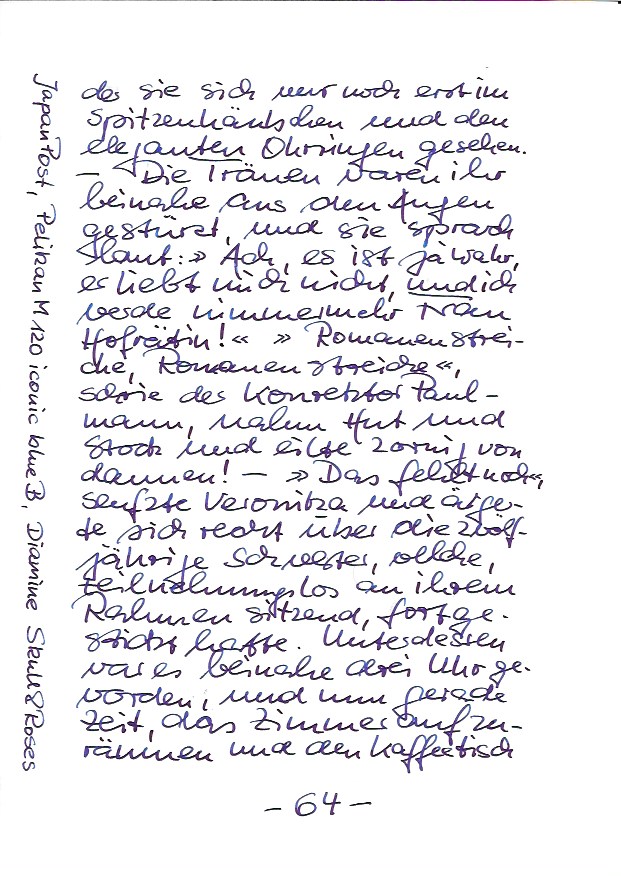 des sie sich nur noch erst im
Spitzenhäubchen und den
eleganten Ohrringen gesehen.
— Die Tränen waren ihr
beinahe aus den Augen
gestürzt, und sie sprach
laut: » Ach, es ist ja wahr,
er liebt mich nicht, und ich
werde nimmermehr Frau
Hofrätin! « » Romanenstrei-
che, Romanenstreiche «,
schrie der Konrektor Paul-
mann, nahm Hut und
Stock und eilte zornig von
dannen! — » Das fehlt noch «,
seufzte Veronika und ärger-
te sich recht über die zwölf-
jährige Schwester, welche,
teilnehmungslos an ihrem
Rahmen sitzend, fortge-
stickt hatte. Unterdessen
war es beinahe drei Uhr ge-
worden, und nun gerade
Zeit, das Zimmer aufzu-
räumen und den Kaffeetisch
– 64 –
JapanPost, Pelikan M 120 iconic blue B, Diamine Skull & Roses